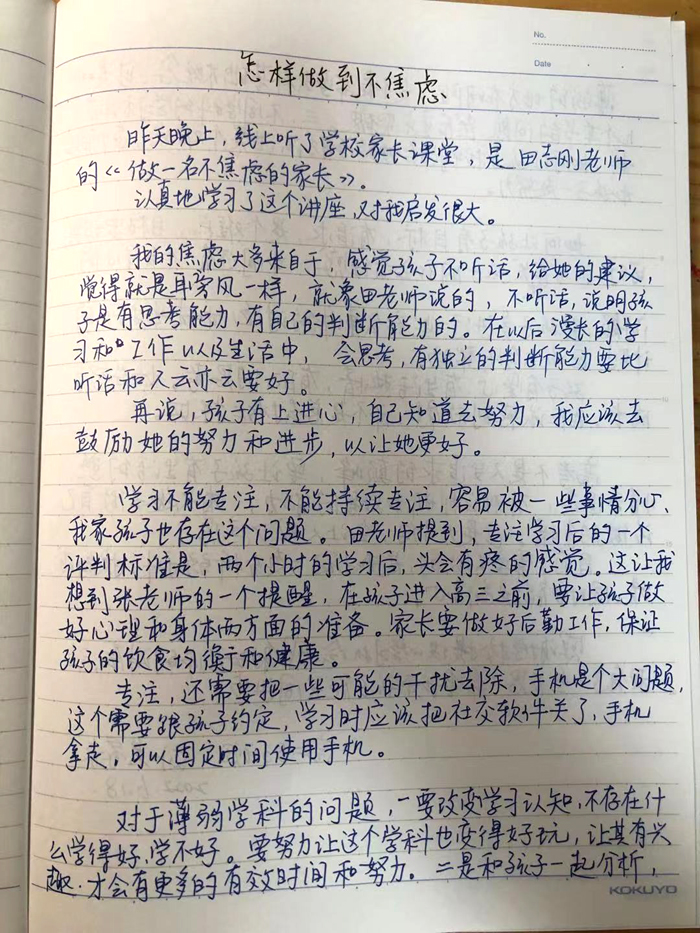 No.
Date
怎样做到不焦虑
昨天晚上，线上听了学校家长课堂，是田志刚老师
的《做一名不焦虑的家长》。
认真地学习了这个讲座，对我启发很大。
我的焦虑大多来自于，感觉孩子不听话，给她的建议，
觉得就是耳旁风一样，就象田老师说的，不听话，说明孩
子是有思考能力，有自己的判断能力的。在以后漫长的学
习和工作以及生活中，会思考，有独立的判断能力要比
听话和人云亦云要好。
再说，孩子有上进心，自己知道去努力，我应该去
鼓励她的努力和进步，以让她更好。
学习不能专注，不能持续专注，容易被一些事情分心，
我家孩子也存在这个问题。田老师提到，专注学习后的一个
评判标准是，两个小时的学习后，头会有疼的感觉。这让我
想到张老师的一个提醒，在孩子进入高三之前，要让孩子做
好心理和身体两方面的准备。家长要做好后勤工作，保证
孩子的饮食均衡和健康。
专注，还需要把一些可能的干扰去除，手机是个大问题，
这个需要跟孩子约定，学习时应该把社交软件关了，手机
拿走，可以固定时间使用手机。
对于薄弱学科的问题，一要改变学习认知，不存在什
么学得好，学不好。要努力让这个学科也变得好玩，让其有兴
趣。才会有更多的有效时间和努力。二是和孩子一起分析，
KOKUYO